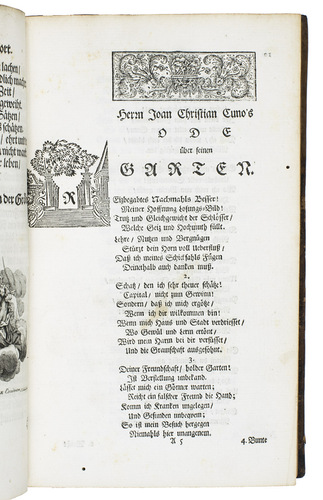 ort.
lachen/
dlich mache
Zeit/
geweiht.
Sätzen/
s schätzen.
/ ehrt unts
nicht mat
e leben/
n der Erde
Herrn Joan Christian Cuno's
ODE
über seinen
GARTEN.
Reizbegabtes Nachmahls Besser!
Meiner Hoffnung Losungs-Bild!
Trutz und Gleichgewicht der Schlösser/
Welche Geiz und Hochmuth füllt.
Lehre/ Nutzen und Vergnügen
Stürzt dein Horn voll Ueberfluß/
Daß ich meines Schicksahls Fügen
Deinethalb auch danken muß.
2.
Schatz/ den ich sehr theuer schätze!
Capital/ nicht zum Gewinn!
Sondern/ daß ich mich ergötz/
Wenn ich dir willkommen bin!
Wenn mich Haus und Stadt verdriesset/
Wo Gewül und Lerm ertönt/
Wird mein Harm bei dir versüsset/
Und die Gramschaft ausgesöhnt.
3.
Deiner Freundschaft/ holder Garten!
Ist Verstellung unbekand.
Lässet mich ein Gönner warten;
Reicht ein falscher Freund die Hand;
Komm ich Kranken ungelegen/
Und Gesunden unbequem;
So ist mein Besuch hergegen
Niemahls hier unangenem.
A 5
4. Bunte